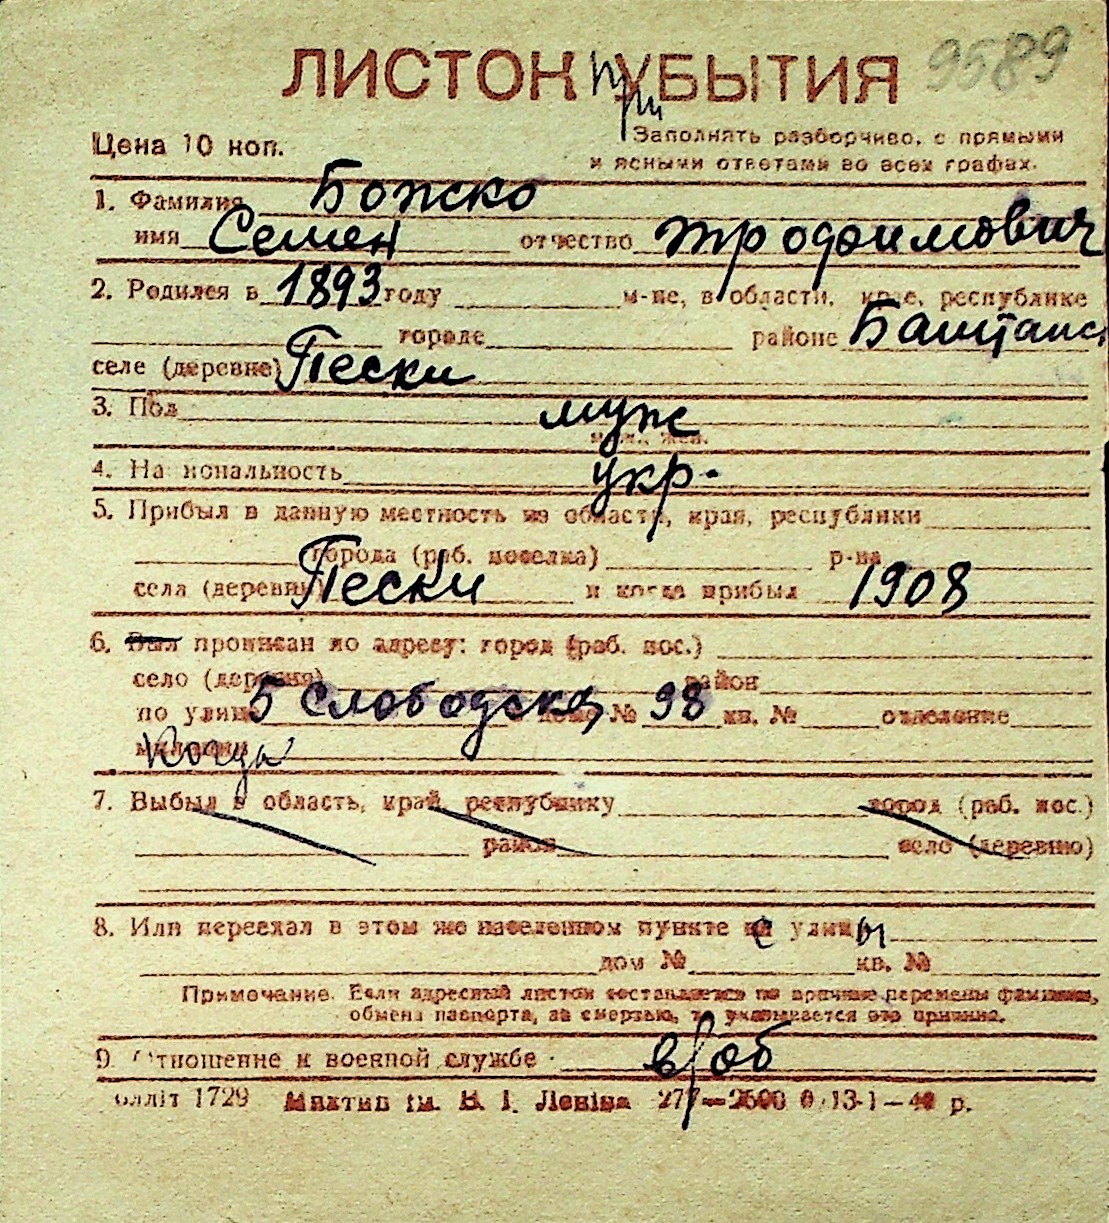 9589
ЛИСТОК при УБЫТИЯ
Цена 10 коп.
Заполнять разборчиво, с прямыми
и ясными ответами во всех графах.
1. Фамилия Божко
имя Семен отчество Трофимович
2. Родился в 1893 году м-це, в области, крае, республике
городе районе Баштанс
селе (деревне) Пески
3. Пол муж
муж., жен.
4. Национальность укр.
5. Прибыл в данную местность из области, края, республики
города (раб. поселка) р-на
села (деревни) Пески и когда прибыл 1908
6. Был прописан по адресу: город (раб. пос.)
село (деревня) район
по улице 5 Слободска дом № 98 кв. № отделение
милиции Когда
7. Выбыл в область, край, республику город (раб. пос.)
район село (деревню)
8. Или переехал в этом же населенном пункте с улицы
дом № кв. №
Примечание. Если адресный листок составляется по причине перемены фамилии,
обмена паспорта, за смертью, то указывается эта причина.
9. Отношение к военной службе в/об
блліт 1729 Миктип ім. В. І. Леніна 277—2500 0 13-1—40 р.